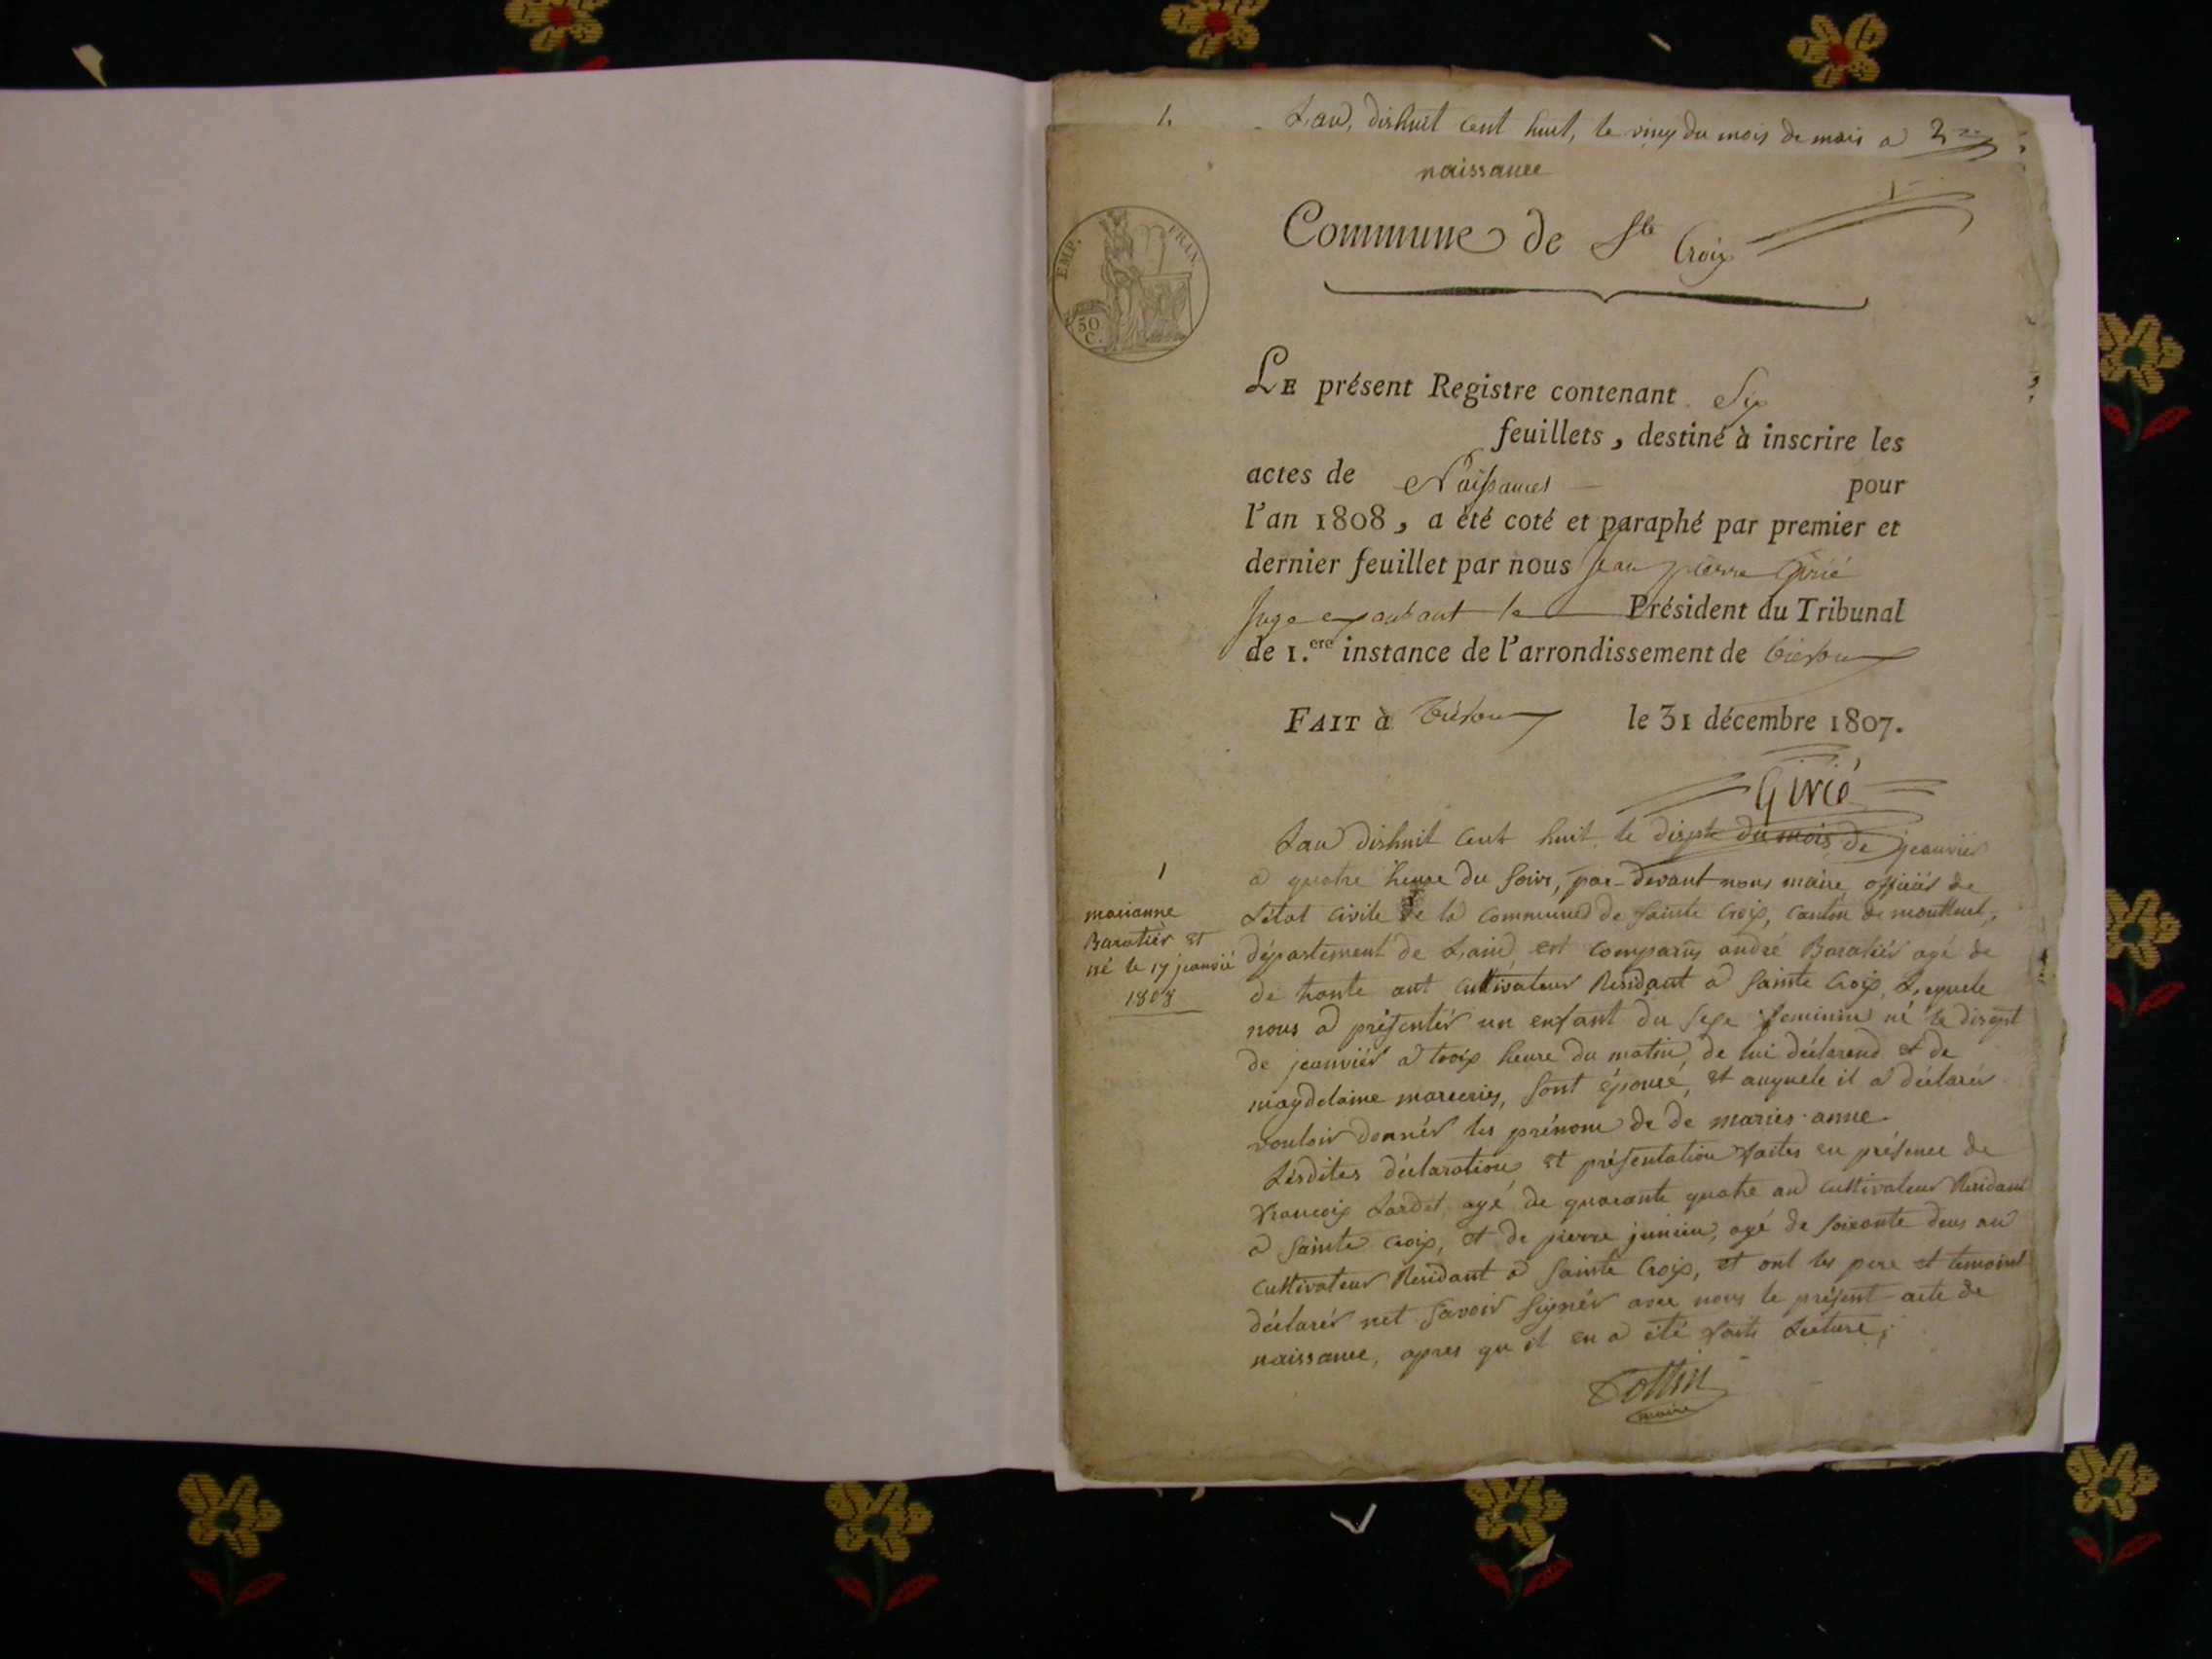 4
Lan, dishuit cent huit, le ving du mois de mais a 2
naissance
1
Commune de Ste Croix
EMP. FRAN.
50
C.
LE présent Registre contenant Six
feuillets, destiné à inscrire les
actes de Naissances pour
l'an 1808, a été coté et paraphé par premier et
dernier feuillet par nous Jean pierre Girié
Juge exerçant le Président du Tribunal
de 1.ere instance de l'arrondissement de Trévoux
FAIT à Trévoux le 31 décembre 1807.
Girié
Lan dishuit cent huit le disepte du mois de jeanvier
a quatre heure du soire, par-devant nous maire officiér de
Létat civile de la Commune de sainte Croix, canton de montluel,
département de Lain, est comparus andré Baratiér agé de
de trante ant cultivateur Residant a sainte Croix, Lequele
nous a présentér un enfant du sexe feminin né le disept
de jeanviér a troix heure du matin, de lui déclarend et de
magdelaine, sont épousé, et auquele il a déclarér
vouloir donnér les prénom de de maries-anne.
Lésdites déclaration, et présentation faites en présence de
francoix Lardet, agé de quarante quatre an cultivateur Residant
a sainte croix, et de pierre junien, agé de soixante deus an
cultivateur Residant a sainte Croix, et ont les pere et temoint
déclarér net savoir signér avec nous le présent acte de
naissance, apres qu'il en a été faite Lecture;
Cottin
maire
1
marianne
Baratiér et
né le 17 jeanvié
1808